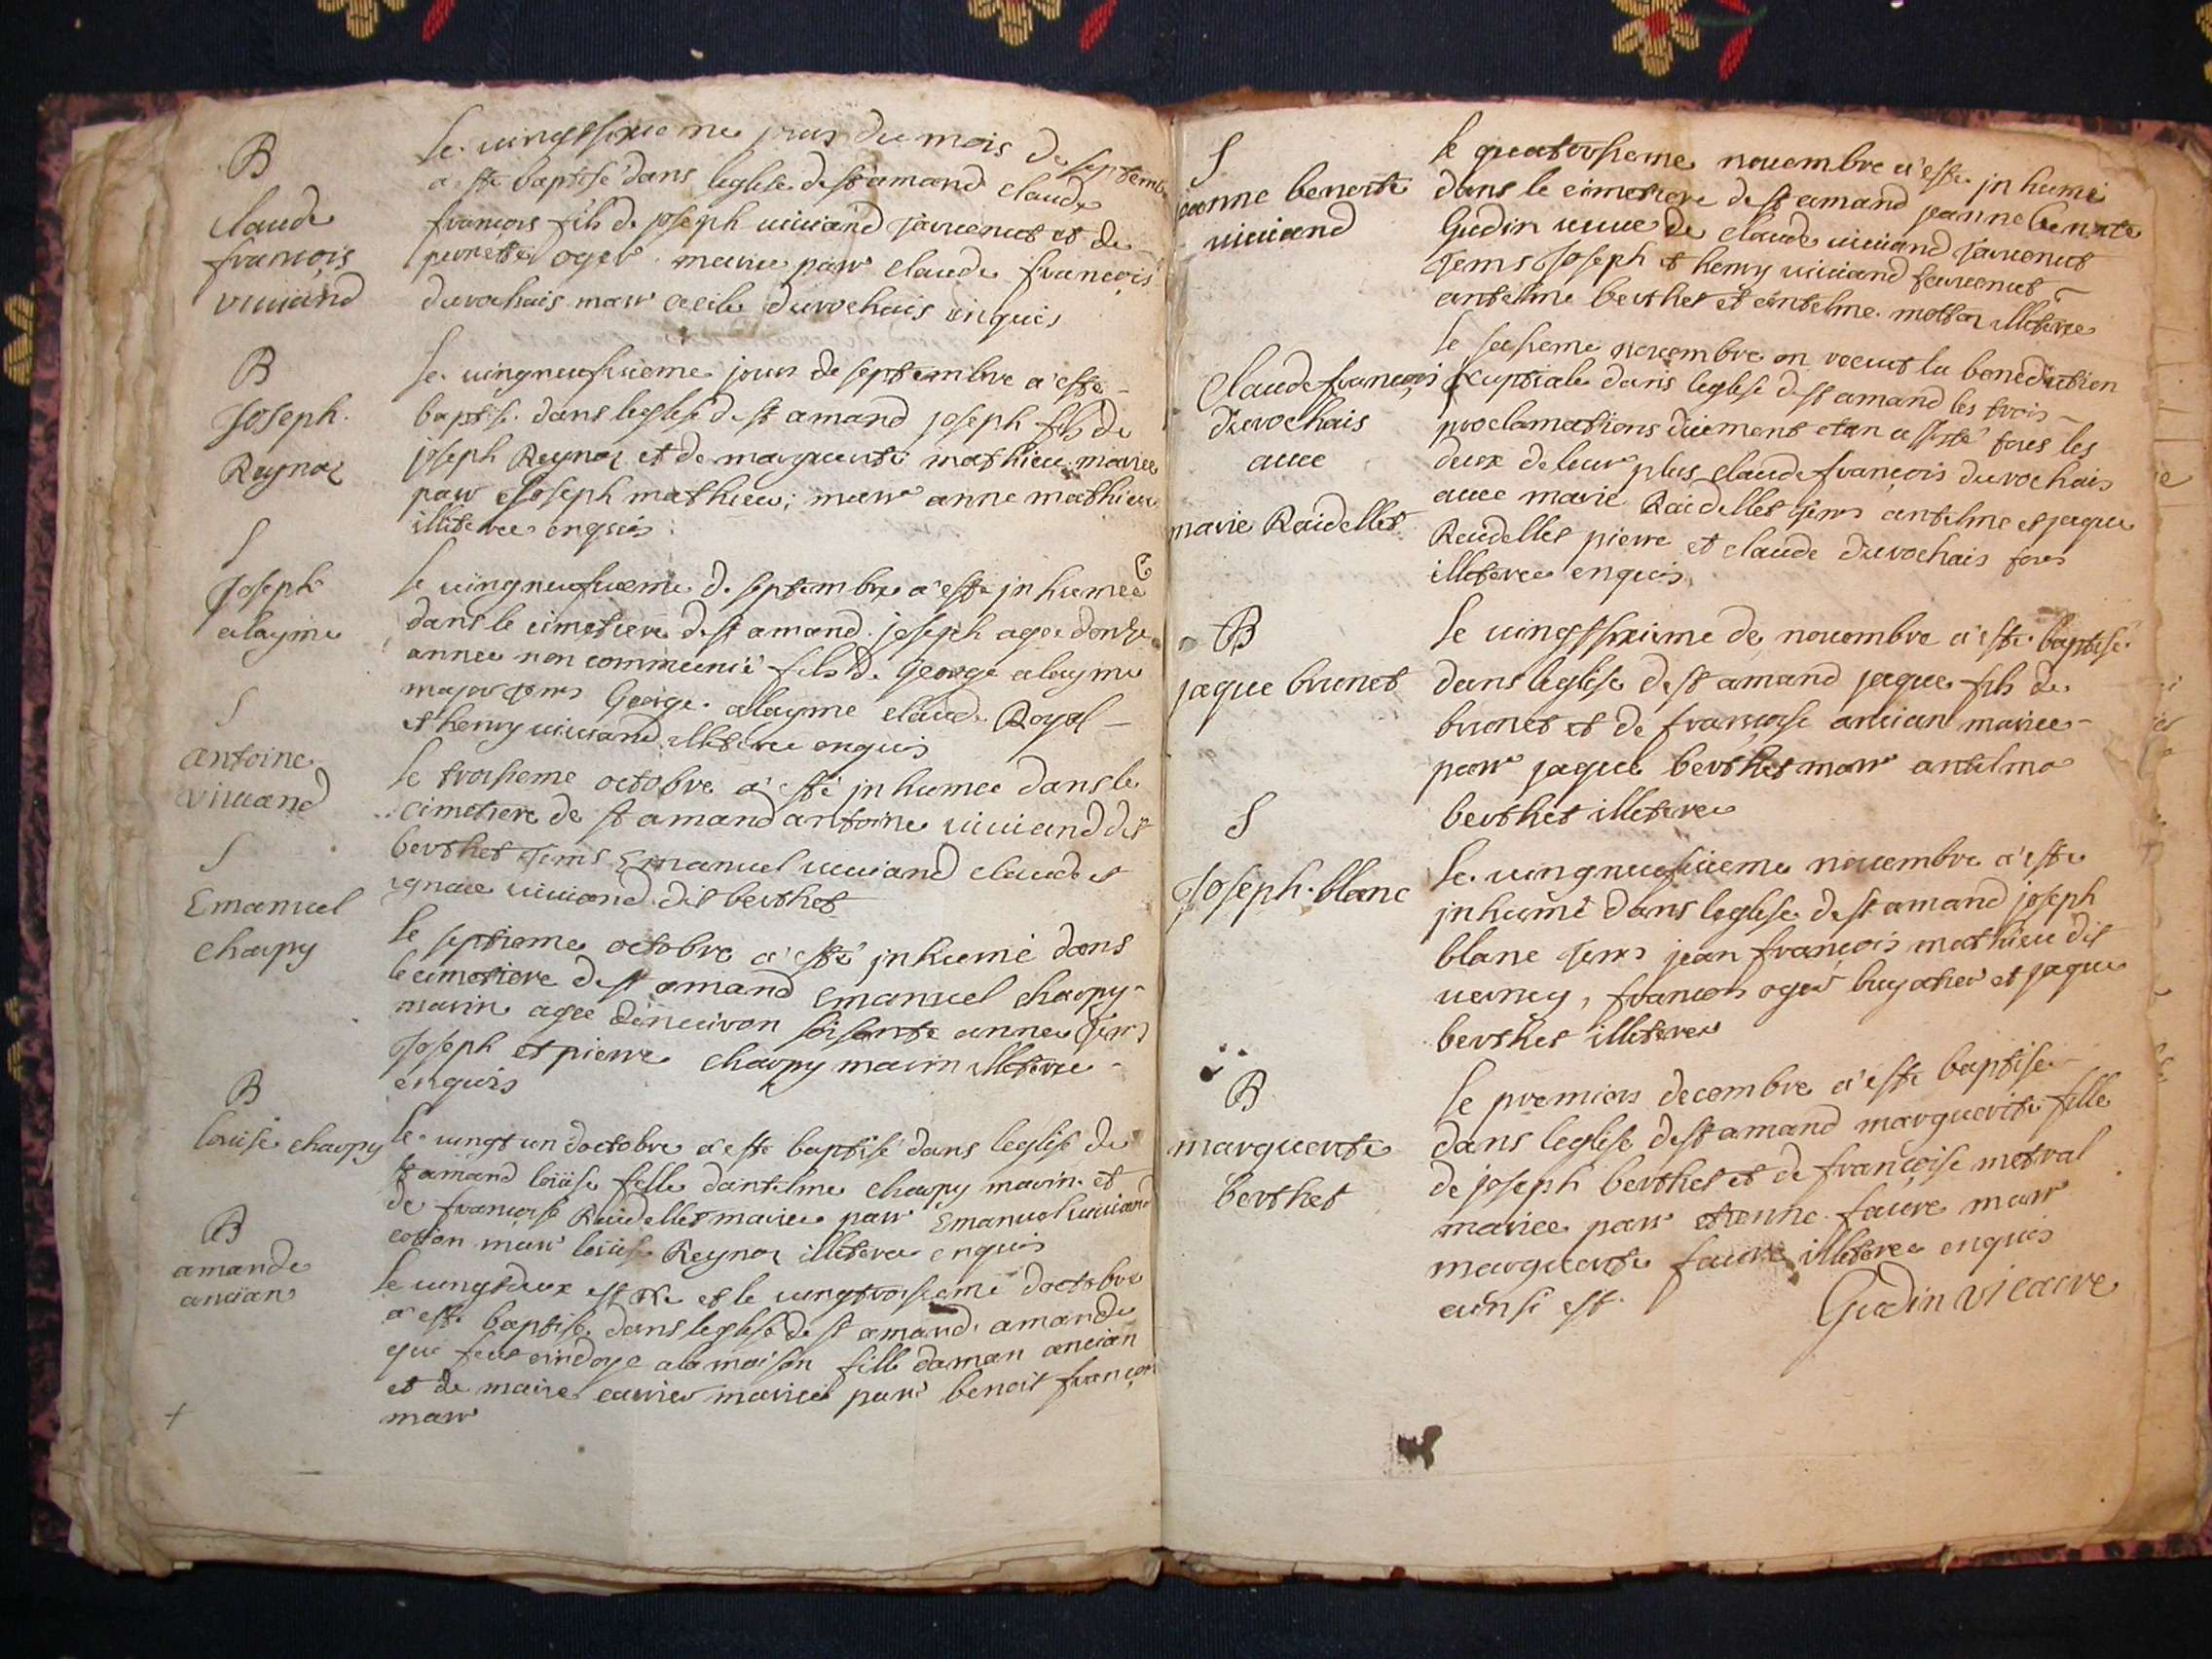 B
Claude
francois
viuiand
le uingtsixieme jour du mois de septembre
a esté baptisé dans leglise de st amand claude
francois fils de joseph uiuiand jauuenct et de
perrette oger mariee parr claude francois
durochais marr cecile durochais enquis
B
Joseph
Reynaz
le uingneufuieme jour de septembre a esté
baptisé dans leglise de st amand joseph fils de
joseph Reynaz et de marguerite mathieu mariee
parr Joseph mathieu, marr anne mathieu
illiteree enquis
S
Joseph
alayme
le uingneufuieme de septembre a esté jnhumee
dans le cimetiere de st amand joseph agee donze
annee non communié fils de george alayme
major tems George alayme claude Royal
et henry uiuiand illiteree enquis
S
antoine
viuiand
le troisieme octobre a esté jnhumee dans le
cimetiere de st amand antoine uiuiand dit
berthet tems Emanuel uiuiand claude et
ignace uiuiand dit berthet
S
Emanuel
charpy
le septieme octobre a esté jnhumé dans
le cimetiere de st amand Emanuel charpy
marin agee denuiron soisante annee tems
Joseph et pierre charpy marin illiteree
enquis
B
louise charpy
le uingt un doctobre a esté baptisé dans leglise de
st amand loüise fille dantelme charpy marin et
de francoise Raidellet mariee parr Emanuel uiuiand
cottan marr loüise Reynaz illiteree enquis
B
amande
ancian
le uingtdeux est né et le uingtroisieme doctobre
a esté baptisé dans leglise de st amand amande
que feut ondoyé a la maison fille daman ancian
et de marie carrier mariee parr benoit francois
marr
S
jeanne benoite
uiuiand
le quatorsieme nouembre a esté jnhumé
dans le cimetiere de st amand jeanne benoite
Gudin ueuue de claude uiuiand jauuenct
tems Joseph et henry uiuiand jauuenct
antelme berthet et antelme mottaz illiteree
Claude francois
durochais
auec
marie Raidellet
le sesieme nouembre on receut la benediction
nuptiale dans leglise de st amand les trois
proclamations duement etan a sisté tous les
deux de leur plus claude francois durochais
auec marie Raidellet tems antelme et jaque
Raidellet pierre et claude durochais tous
illiteree enquis
B
jaque brunet
le uingtsixieme de nouembre a esté baptisé
dans leglise de st amand jaque fils de
brunet et de francoise ancian mariee
parr jaque berthet marr antelma
berthet illiteree
S
Joseph blanc
le uingneufuieme nouembre a esté
jnhumé dans leglise de st amand joseph
blanc tems jean francois mathieu dit
uerney, francois oger buyatier et jaque
berthet illiteree
B
marguerite
berthet
le premiers decembre a esté baptisé
dans leglise de st amand marguerite fille
de joseph berthet et de françoise metral
mariee parr etienne faure marr
marguerite faure illiteree enquis
ainsi est Gudin vicaire